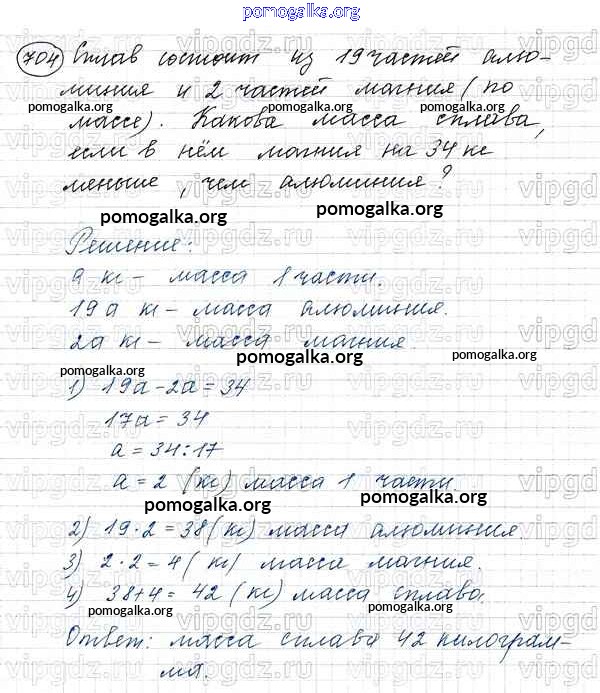 pomogalka.org
704 Сплав состоит из 19 частей алю-
миния и 2 частей магния (по
pomogalka.org pomogalka.org
массе). Какова масса сплава,
если в нём магния на 34 кг
меньше, чем алюминия?
pomogalka.org pomogalka.org
Решение:
а кг – масса 1 части.
19а кг – масса алюминия.
2а кг – масса магния.
pomogalka.org pomogalka.org pomogalka.org
1) 19а-2а=34
17а=34
а=34:17
а=2 (кг) масса 1 части.
pomogalka.org pomogalka.org
2) 19·2=38(кг) масса алюминия.
3) 2·2=4(кг) масса магния.
4) 38+4=42(кг) масса сплава.
pomogalka.org pomogalka.org
Ответ: масса сплава 42 килограм-
ма.